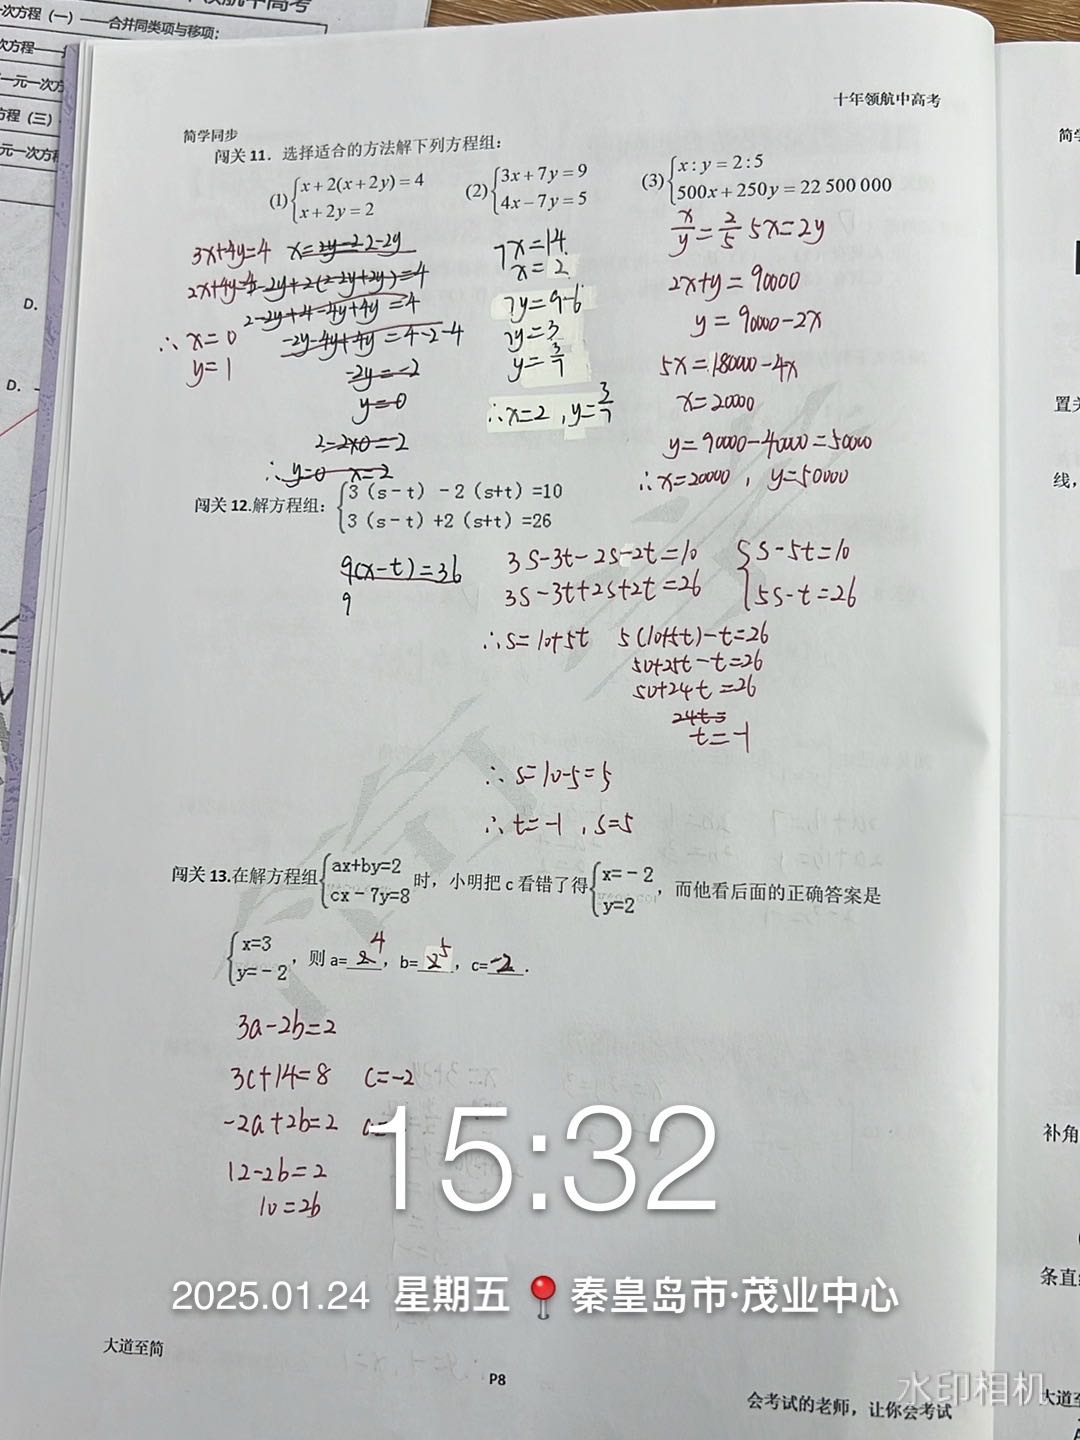 次方程（一）——合并同类项与移项；
次方程——
一元一次方
方程（三）
元一次方程
D.
D.
十年领航中高考
简学同步
闯关 11. 选择适合的方法解下列方程组：
(1){x+2(x+2y)=4
x+2y=2
(2){3x+7y=9
4x-7y=5
(3){x:y=2:5
500x+250y=22 500 000
3x+4y=4 x=2y-2 2-2y
2x+4y=4 -2y+2(2-2y+2y)=4
2-2y+4-4y+4y=4
∴ x=0 -2y-4y+4y=4-2-4
y=1 -2y=-2
y=0
2-2×0=2
∴ y=0 x=2
7x=14
x=2
7y=9-6
7y=3
y=3/7
∴x=2 , y=3/7
x/y=2/5 5x=2y
2x+y=90000
y=90000-2x
5x=180000-4x
x=20000
y=90000-40000=50000
∴x=20000 , y=50000
闯关 12.解方程组：{3（s-t）-2（s+t）=10
3（s-t）+2（s+t）=26
9(x-t)=36
9
3s-3t-2s-2t=10
3s-3t+2s+2t=26
{s-5t=10
5s-t=26
∴s=10+5t 5(10+5t)-t=26
50+25t-t=26
50+24t=26
24t=
t=-1
∴ s=10-5=5
∴ t=-1 , s=5
闯关 13.在解方程组{ax+by=2
cx-7y=8 时，小明把 c 看错了得{x=-2
y=2 ，而他看后面的正确答案是
{x=3
y=-2 ，则 a= 4 ，b= 5 ，c= -2 .
3a-2b=2
3c+14=8 c=-2
-2a+2b=2 a=
12-2b=2
10=2b
15:32
2025.01.24 星期五 秦皇岛市·茂业中心
大道至简
P8
会考试的老师，让你会考试
水印相机
简学
置关
线，
补角
条直线
大道至